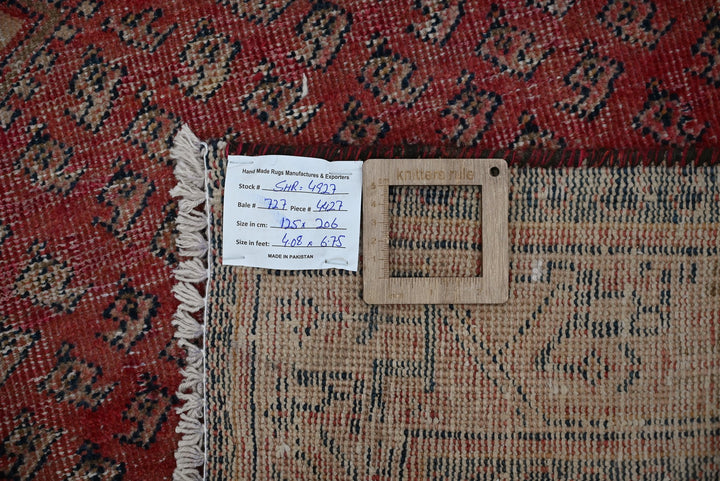 Hand Made Rugs Manufactures & Exporters
Stock # SHR: 4927
Bale # 727 Piece # 4427
Size in cm: 125 x 206
Size in feet: 4.08 x 6.75
MADE IN PAKISTAN
knitters rule